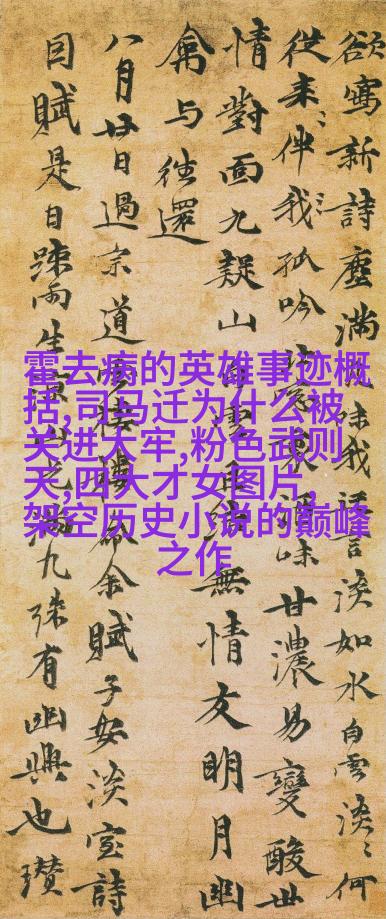 霍去病的英雄事迹概
括,司马迁为什么被
关进大牢,粉色武则
天,四大才女图片,
架空历史小说的巅峰
之作
欲寫新詩塵滿味我話言淡如水白雲淡〻何
從来〻伴我〻孤吟味甘濃易變酸世
情對面九疑山無情友明月幽
禽与往還
八月廿日過宗道命余賦子安淡室詩
目賦是日踈雨生九殊有幽興也瓚